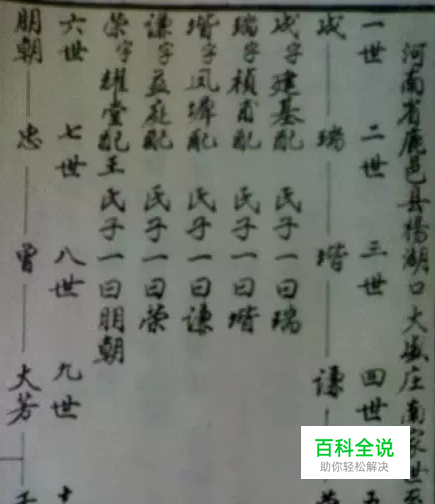 河南省鹿邑县楊湖口大盛庄南家世
一世 二世 三世 四世 五
成 瑞 堦 谦
成字建基配 氏子一曰瑞
瑞字楨甫配 氏子一曰堦
堦字凤墀配 氏子一曰谦
谦字益庭配 氏子一曰荣
荣字耀堂配王氏子一曰朋朝
六世 七世 八世 九世 十
朋朝 忠 曾 大芳
百科全说
助你轻松解决